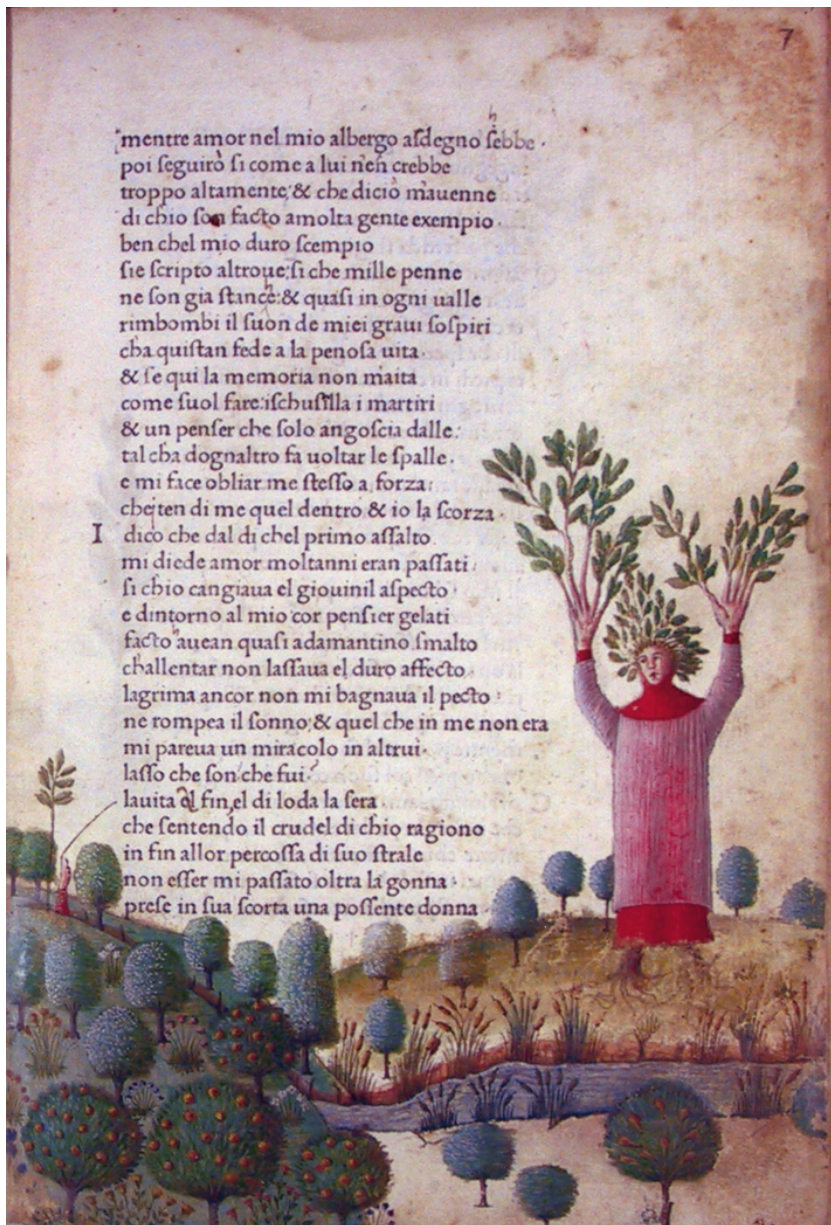 7
mentre amor nel mio albergo asdegno sebbe.
poi seguirò si come a lui nen crebbe
troppo altamente; & che diciò mauenne
di chio son facto amolta gente exempio.
ben chel mio duro scempio
sie scripto altroue; si che mille penne
ne son gia stanche: & quasi in ogni ualle
rimbombi il suon de miei graui sospiri
cha quistan fede a la penosa uita
& se qui la memoria non maita
come suol fare: ischusilla i martiri
& un penser che solo angoscia dalle:
tal cha dognaltro fa uoltar le spalle.
e mi face obliar me stesso a forza:
che ten di me quel dentro & io la scorza.
I dico che dal di chel primo assalto
mi diede amor moltanni eran passati.
si chio cangiaua el giouinil aspecto
e dintorno al mio cor pensier gelati
facto auean quasi adamantino smalto
challentar non lassaua el duro affecto.
lagrima ancor non mi bagnaua il pecto
ne rompea il sonno; & quel che in me non era
mi pareua un miracolo in altrui.
lasso che son che fui
lauita al fin, el di loda la sera
che sentendo il crudel di chio ragiono
in fin allor percossa di suo strale
non esser mi passato oltra la gonna.
prese in sua scorta una possente donna.